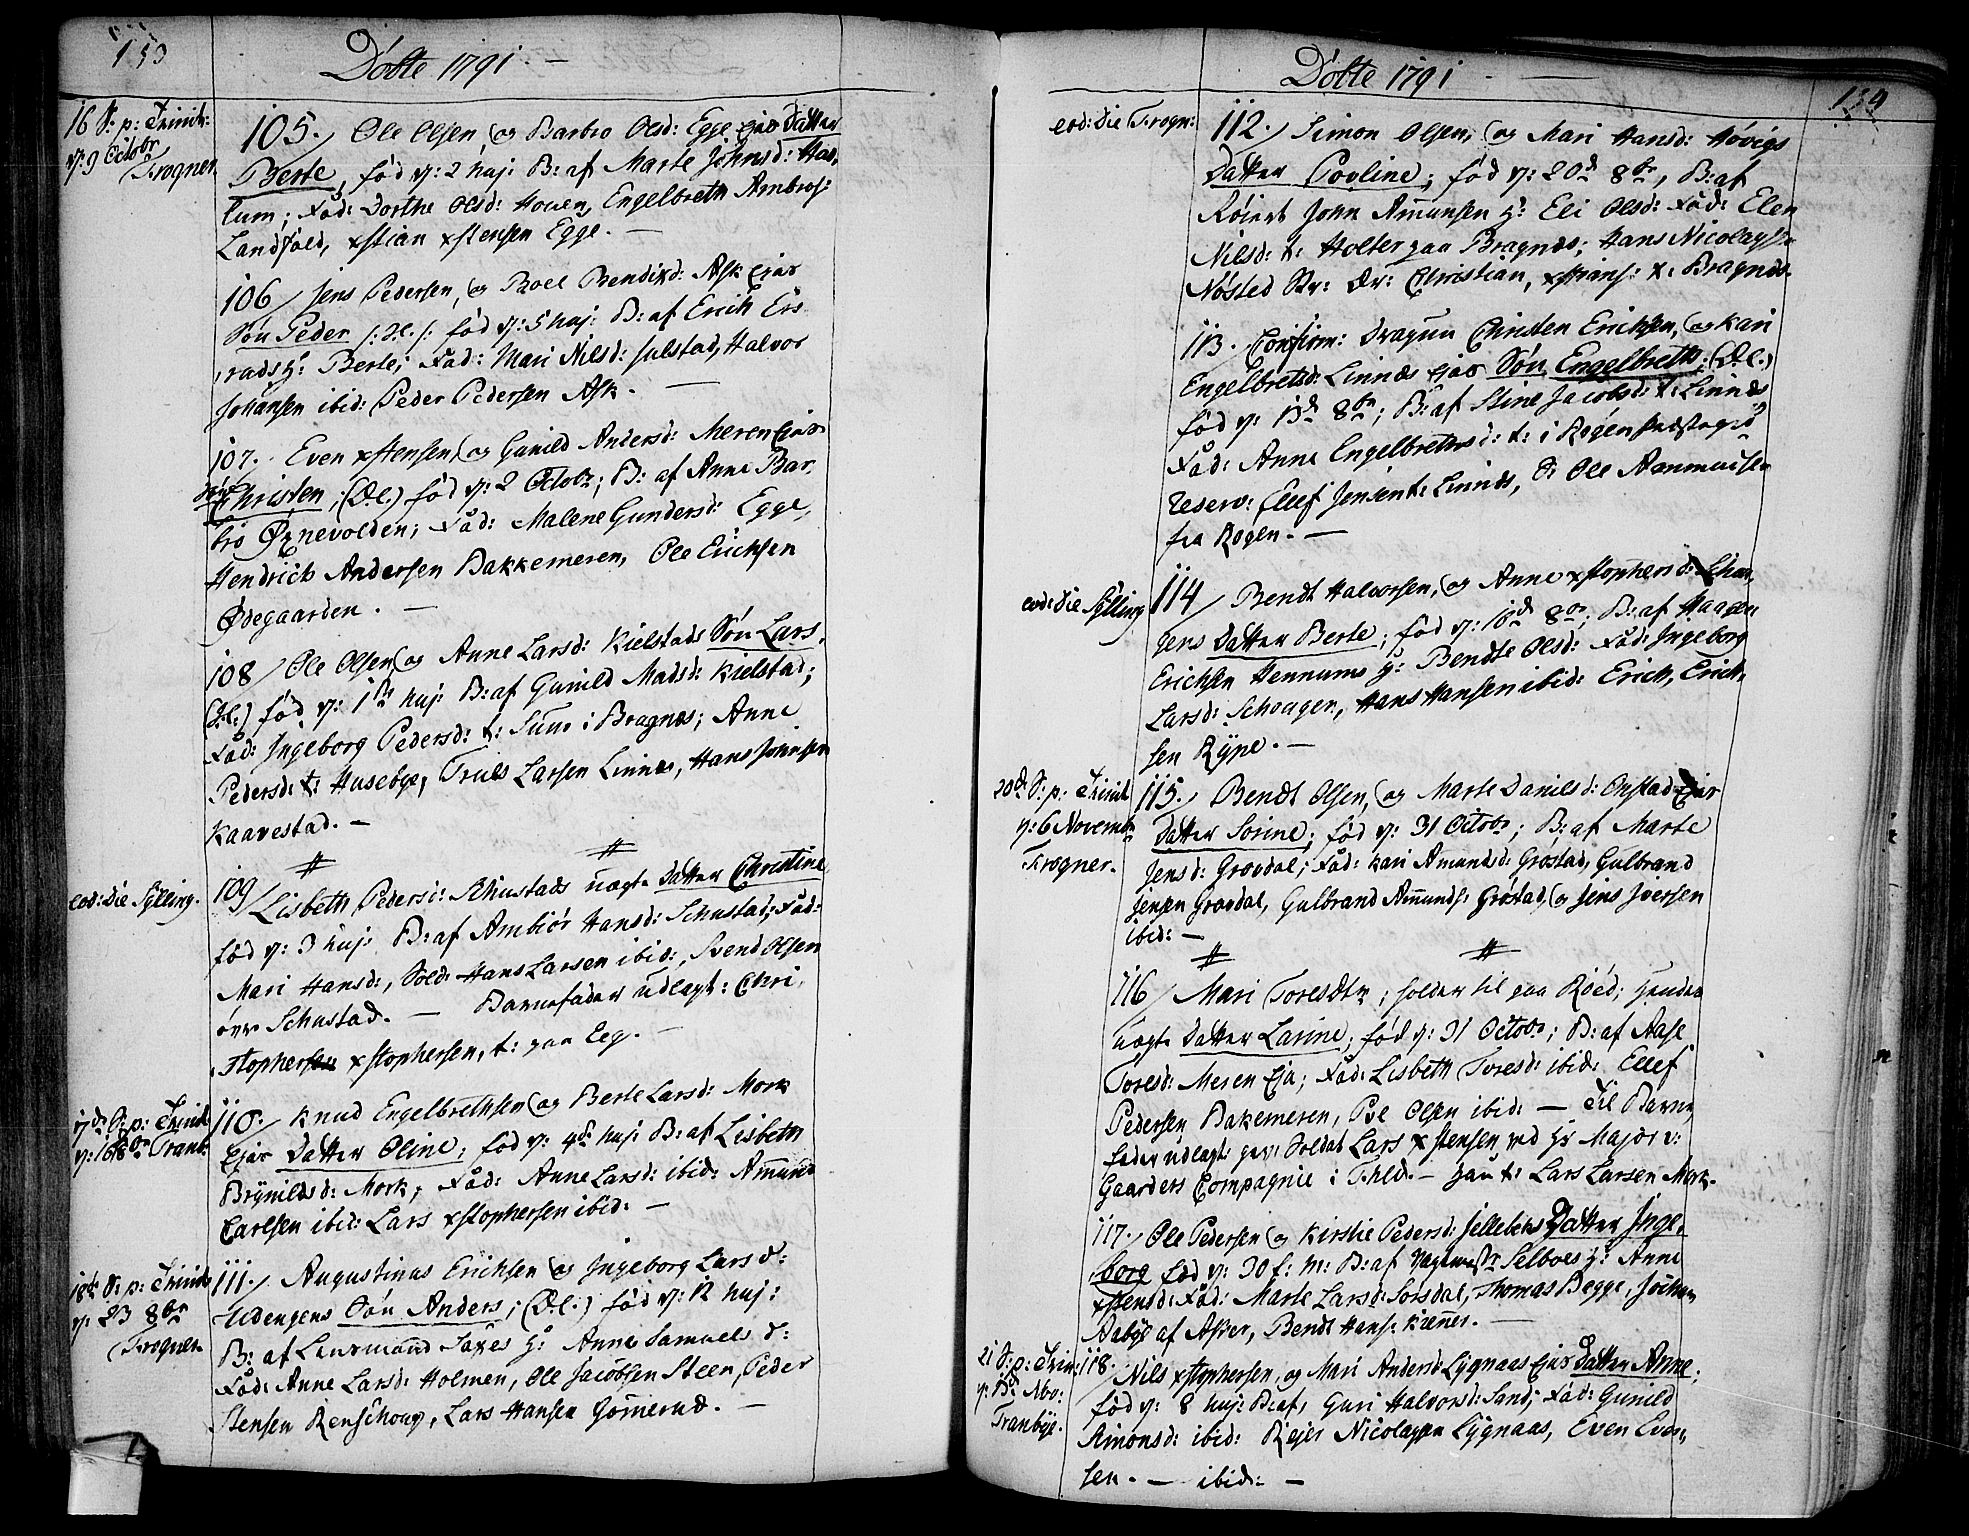 153
Döbte 1791 —
16 S: p: Trinit:
d: 9 Octobr
Frogner
105. Ole Olsen, og Barbro Olsd: Egge ejas Datter
Berte, fød d: 2 huj: B: af Marte Johnsd: Has,
lum; Fad: Dorthe Olsd: Houen, Engelbreth Ambros:
Landfald, xstian xstensen Egge. —
106/ Jens Pedersen, og Boel Bendixd: Ask ejas
Søn Peder /: D.l. /: fød d: 5 huj: B: af Erich Ers
rads h: Berte; Fad: Mari Nilsd: Julstad, Halvor
Johansen ibid: Peder Pedersen Ask. —
107. Even xstensen, og Gunild Andersd: Meren ejas
Søn Christen; (D.l.) fød d: 2 Octobr; B: af Anne Bar,
bro Ørnevolden; Fad: Malene Gundersd: Egge,
Hendrich Andersen Bakkemeren, Ole Erichsen
Ødegaarden. —
108/ Ole Olsen, og Anne Larsd: Kielstads Søn Lars,
(D.l.) fød d: 1ste huj: B: af Gunild Madsd: Kielstad;
Fad: Ingeborg Pedersd: t: Sum i Bragnes; Anne
Pedersd: t: Husebye, Truls Larsen Linnes, Hans Johnsen
Kaavestad. —
eod: die Sylling.
109/ Lisbeth Pedersd: Schustads uægte Datter Christine
fød d: 3 huj: B: af Ambiør Hansd: Schustad; Fad:
Mari Hansd:, Sold: Hans Larsen ibid:, Svend Olsen
øvr Schustad. — Barnefader udlagt: Chri,
stophersen xstophersen, t: paa Eeg. —
17de S: p: Trinit
d: 16 8br Tranb:
110. Knud Engelbrethsen og Berte Larsd: Mork
Ejas Datter Oline; fød d: 4de huj: B: af Lisbeth
Brynildsd: Mork; Fad: Anne Larsd: ibid: Amund
Carlsen ibid: Lars xstophersen ibid: —
18de S: p: Trinit
d: 23 8br
Frogner
111. Augustinus Erichsen og Ingeborg Larsd:
Udengens Søn Anders; (D.l.) fød d: 12 huj:
B: af Lensmand Saxes h: Anne Samuelsd:
Fad: Anne Larsd: Holmen, Ole Jacobsen Steen, Peder
Stensen Renschoug, Lars Hansen Gomerud. —
Döbte 1791 —
154
eod: die Frogn:
112. Simon Olsen, og Mari Hansd: Høvigs
Datter Povline; fød d: 20d 8br, B: af
Røiert John Amunsen h: Eli Olsd: Fad: Elen
Nilsd: t: Holter paa Bragnes; Hans Nicolays
Nøsted Christian, xstians: t: Bragnes.
113. Confirm: Dragun Christen Erichsen, og Kari
Engelbretsd: Linnes ejas Søn Engelbreth: (D.l.)
fød d: 13d 8br; B: af Stine Jacobsd: t: Linnes
Fad: Anne Engelbrethsd: t: i Røgen
reserv: Ellef Jensen t: Linnes, & Ole Aanmunsen
fra Røgen. —
eod: die Sylling
114/ Bendt Halvorsen, og Anne xstophersd:
Datter Berte; fød d: 16d 8br; B: af Haagen
Erichsen Hennums h: Bendte Olsd: Fad: Ingeborg
Larsd: Schougen, Hans Hansen ibid: Erich, Erich,
sen Rype. —
20de S: p: Trinit
d: 6 November
Frogner.
115. Bendt Olsen, og Marte Danilsd: Onstad Ejas
Datter Sorine; fød d: 31 Octobr; B: af Marte
Jensd: Grovdal; Fad: Kari Amundsd: Grøstad, Gulbrand
Jensen Grovdal, Gulbrand Amunds: Grøstad, og Jens Iversen
ibid: —
116/ Mari Toresdtr; holder til paa Røed; hendes
uægte Datter Larine; fød d: 31 Octobr; B: af Aase
Toresd: Meren Eja; Fad: Lisbeth Toresd: ibid: Ellef
Pedersen Bakemeren, Pol Olsen ibid: — Til Barne
fader udlagt: Soldat Lars xstensen ved Hr Major v:
Gaarders Compagnie i Fhld. — t: Lars Larsen Mork.
117. Ole Pedersen og Kirstie Pedersd: Jellebeks Datter Inge,
borg fød d: 30 f: m: B: af Vagtmestr Selboes h: Anne
xstensd: Fad: Marte Larsd: Sorsdal, Thomas Begge, Jochum
Aabye af Asker, Bendt Hans: Kienner. —
21 S: p: Trin:
d: 13d Nbo:
Tranbye.
118. Nils xstophersen, og Mari Andersd: Lygnaas Ejas Datter Anne;
fød d: 8 huj: B: af, Guri Halvorsd: Sand; Fad: Gunild
Simonsd: ibid: Rejer Nicolaysen Lygnaas, Even Even,
sen. — ibid: —